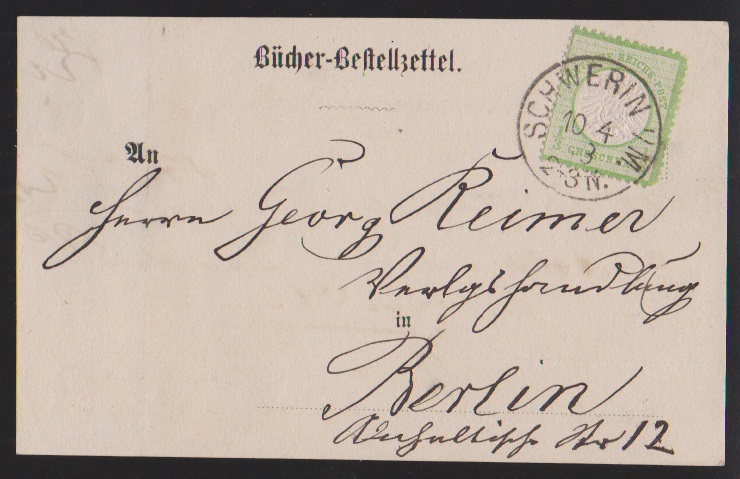 Bücher-Bestellzettel.
REICHS-POST
GROSCHEN
SCHWERIN I/M.
10 4
3
2-3 N.
An
Herrn Georg Reimer
Verlgshandlung
in
Berlin
Anhaltische Str 12